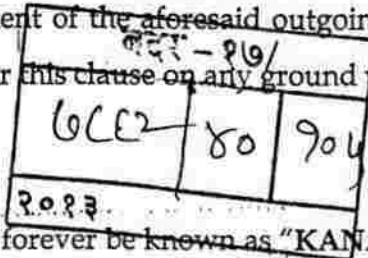 ent of the aforesaid outgoin
बदर - १७/
r this clause on any ground
४० १०५
२०१३
forever be known as "KANA